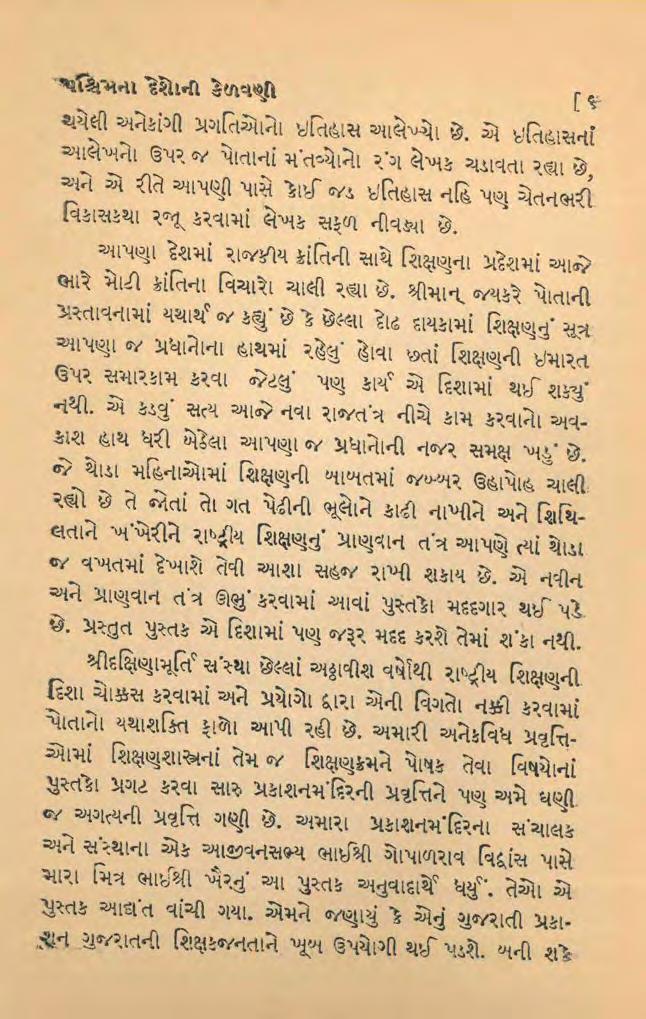 પશ્ચિમના દેશોની કેળવણી
[ ૬
થયેલી અનેકાંગી પ્રગતિઓનો ઇતિહાસ આલેખ્યો છે. એ ઇતિહાસનાં
આલેખનો ઉપર જ પોતાનાં મંતવ્યોનો રંગ લેખક ચડાવતા રહ્યા છે,
અને એ રીતે આપણી પાસે કોઈ જડ ઇતિહાસ નહિ પણ ચેતનભરી
વિકાસકથા રજૂ કરવામાં લેખક સફળ નીવડ્યા છે.
આપણા દેશમાં રાજકીય ક્રાંતિની સાથે શિક્ષણના પ્રદેશમાં આજે
ભારે મોટી ક્રાંતિના વિચારો ચાલી રહ્યા છે. શ્રીમાન્ જયકરે પોતાની
પ્રસ્તાવનામાં યથાર્થ જ કહ્યું છે કે છેલ્લા દોઢ દાયકામાં શિક્ષણનું સૂત્ર
આપણા જ પ્રધાનોના હાથમાં રહેલું હોવા છતાં શિક્ષણની ઇમારત
ઉપર સમારકામ કરવા જેટલું પણ કાર્ય એ દિશામાં થઈ શક્યું
નથી. એ કડવું સત્ય આજે નવા રાજતંત્ર નીચે કામ કરવાનો અવ-
કાશ હાથ ધરી બેઠેલા આપણા જ પ્રધાનોની નજર સમક્ષ ખડું છે.
જે થોડા મહિનાઓમાં શિક્ષણની બાબતમાં જબ્બર ઉહાપોહ ચાલી
રહ્યો છે તે જોતાં તો ગત પેઢીની ભૂલોને કાઢી નાખીને અને શિથિ-
લતાને ખંખેરીને રાષ્ટ્રીય શિક્ષણનું પ્રાણવાન તંત્ર આપણે ત્યાં થોડા
જ વખતમાં દેખાશે તેવી આશા સહજ રાખી શકાય છે. એ નવીન
અને પ્રાણવાન તંત્ર ઊભું કરવામાં આવાં પુસ્તકો મદદગાર થઈ પડે
છે. પ્રસ્તુત પુસ્તક એ દિશામાં પણ જરૂર મદદ કરશે તેમાં શંકા નથી.
શ્રીદક્ષિણામૂર્તિ સંસ્થા છેલ્લાં અઠ્ઠાવીશ વર્ષોથી રાષ્ટ્રીય શિક્ષણની
દિશા ચોક્કસ કરવામાં અને પ્રયોગો દ્વારા એની વિગતો નક્કી કરવામાં
પોતાનો યથાશક્તિ ફાળો આપી રહી છે. અમારી અનેકવિધ પ્રવૃત્તિ-
ઓમાં શિક્ષણશાસ્ત્રનાં તેમ જ શિક્ષણક્રમને પોષક તેવા વિષયોનાં
પુસ્તકો પ્રગટ કરવા સારુ પ્રકાશનમંદિરની પ્રવૃત્તિને પણ અમે ઘણી
જ અગત્યની પ્રવૃત્તિ ગણી છે. અમારા પ્રકાશનમંદિરના સંચાલક
અને સંસ્થાના એક આજીવનસભ્ય ભાઈશ્રી ગોપાળરાવ વિદ્વાંસ પાસે
મારા મિત્ર ભાઈશ્રી ખૈરનું આ પુસ્તક અનુવાદાર્થે ધર્યું. તેઓ એ
પુસ્તક આદ્યંત વાંચી ગયા. એમને જણાયું કે એનું ગુજરાતી પ્રકા-
શન ગુજરાતની શિક્ષકજનતાને ખૂબ ઉપયોગી થઈ પડશે. બની શકે